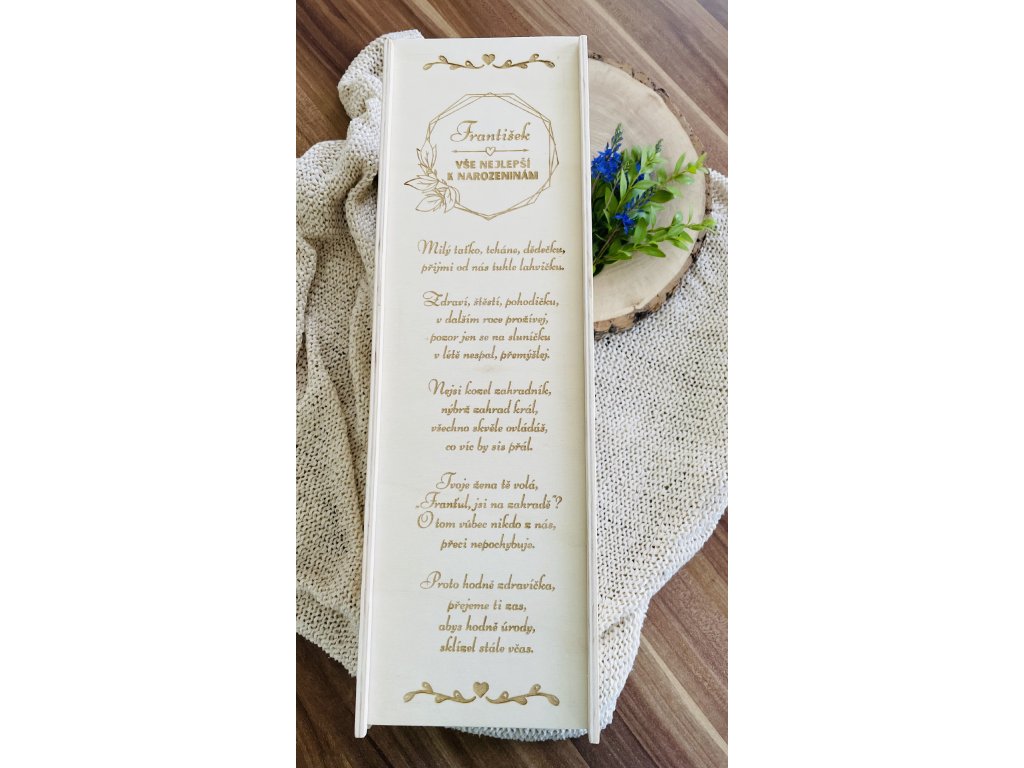 František
VŠE NEJLEPŠÍ
K NAROZENINÁM
Milý taťko, tcháne, dědečku,
přijmi od nás tuhle lahvičku.
Zdraví, štěstí, pohodičku,
v dalším roce prožívej,
pozor jen se na sluníčku
v létě nespal, přemýšlej.
Nejsi kozel zahradník,
nýbrž zahrad král,
všechno skvěle ovládáš,
co víc by sis přál.
Tvoje žena tě volá,
„Franťul, jsi na zahradě"?
O tom vůbec nikdo z nás,
přeci nepochybuje.
Proto hodně zdravíčka,
přejeme ti zas,
abys hodně úrody,
sklízel stále včas.